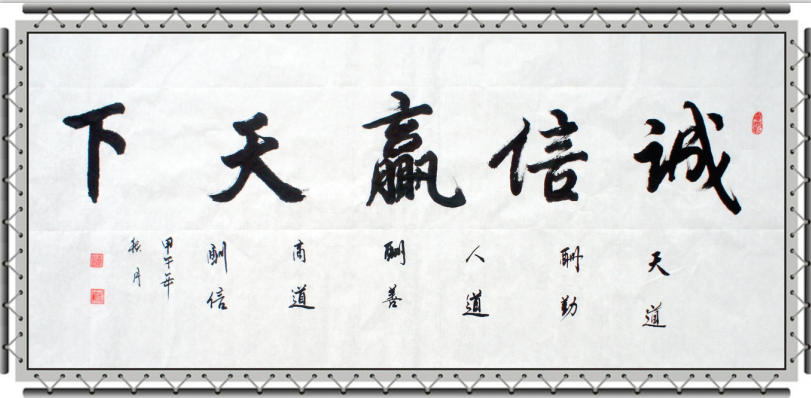 诚信赢天下
天道
酬勤
人道
酬善
商道
酬信
甲午年
秋月